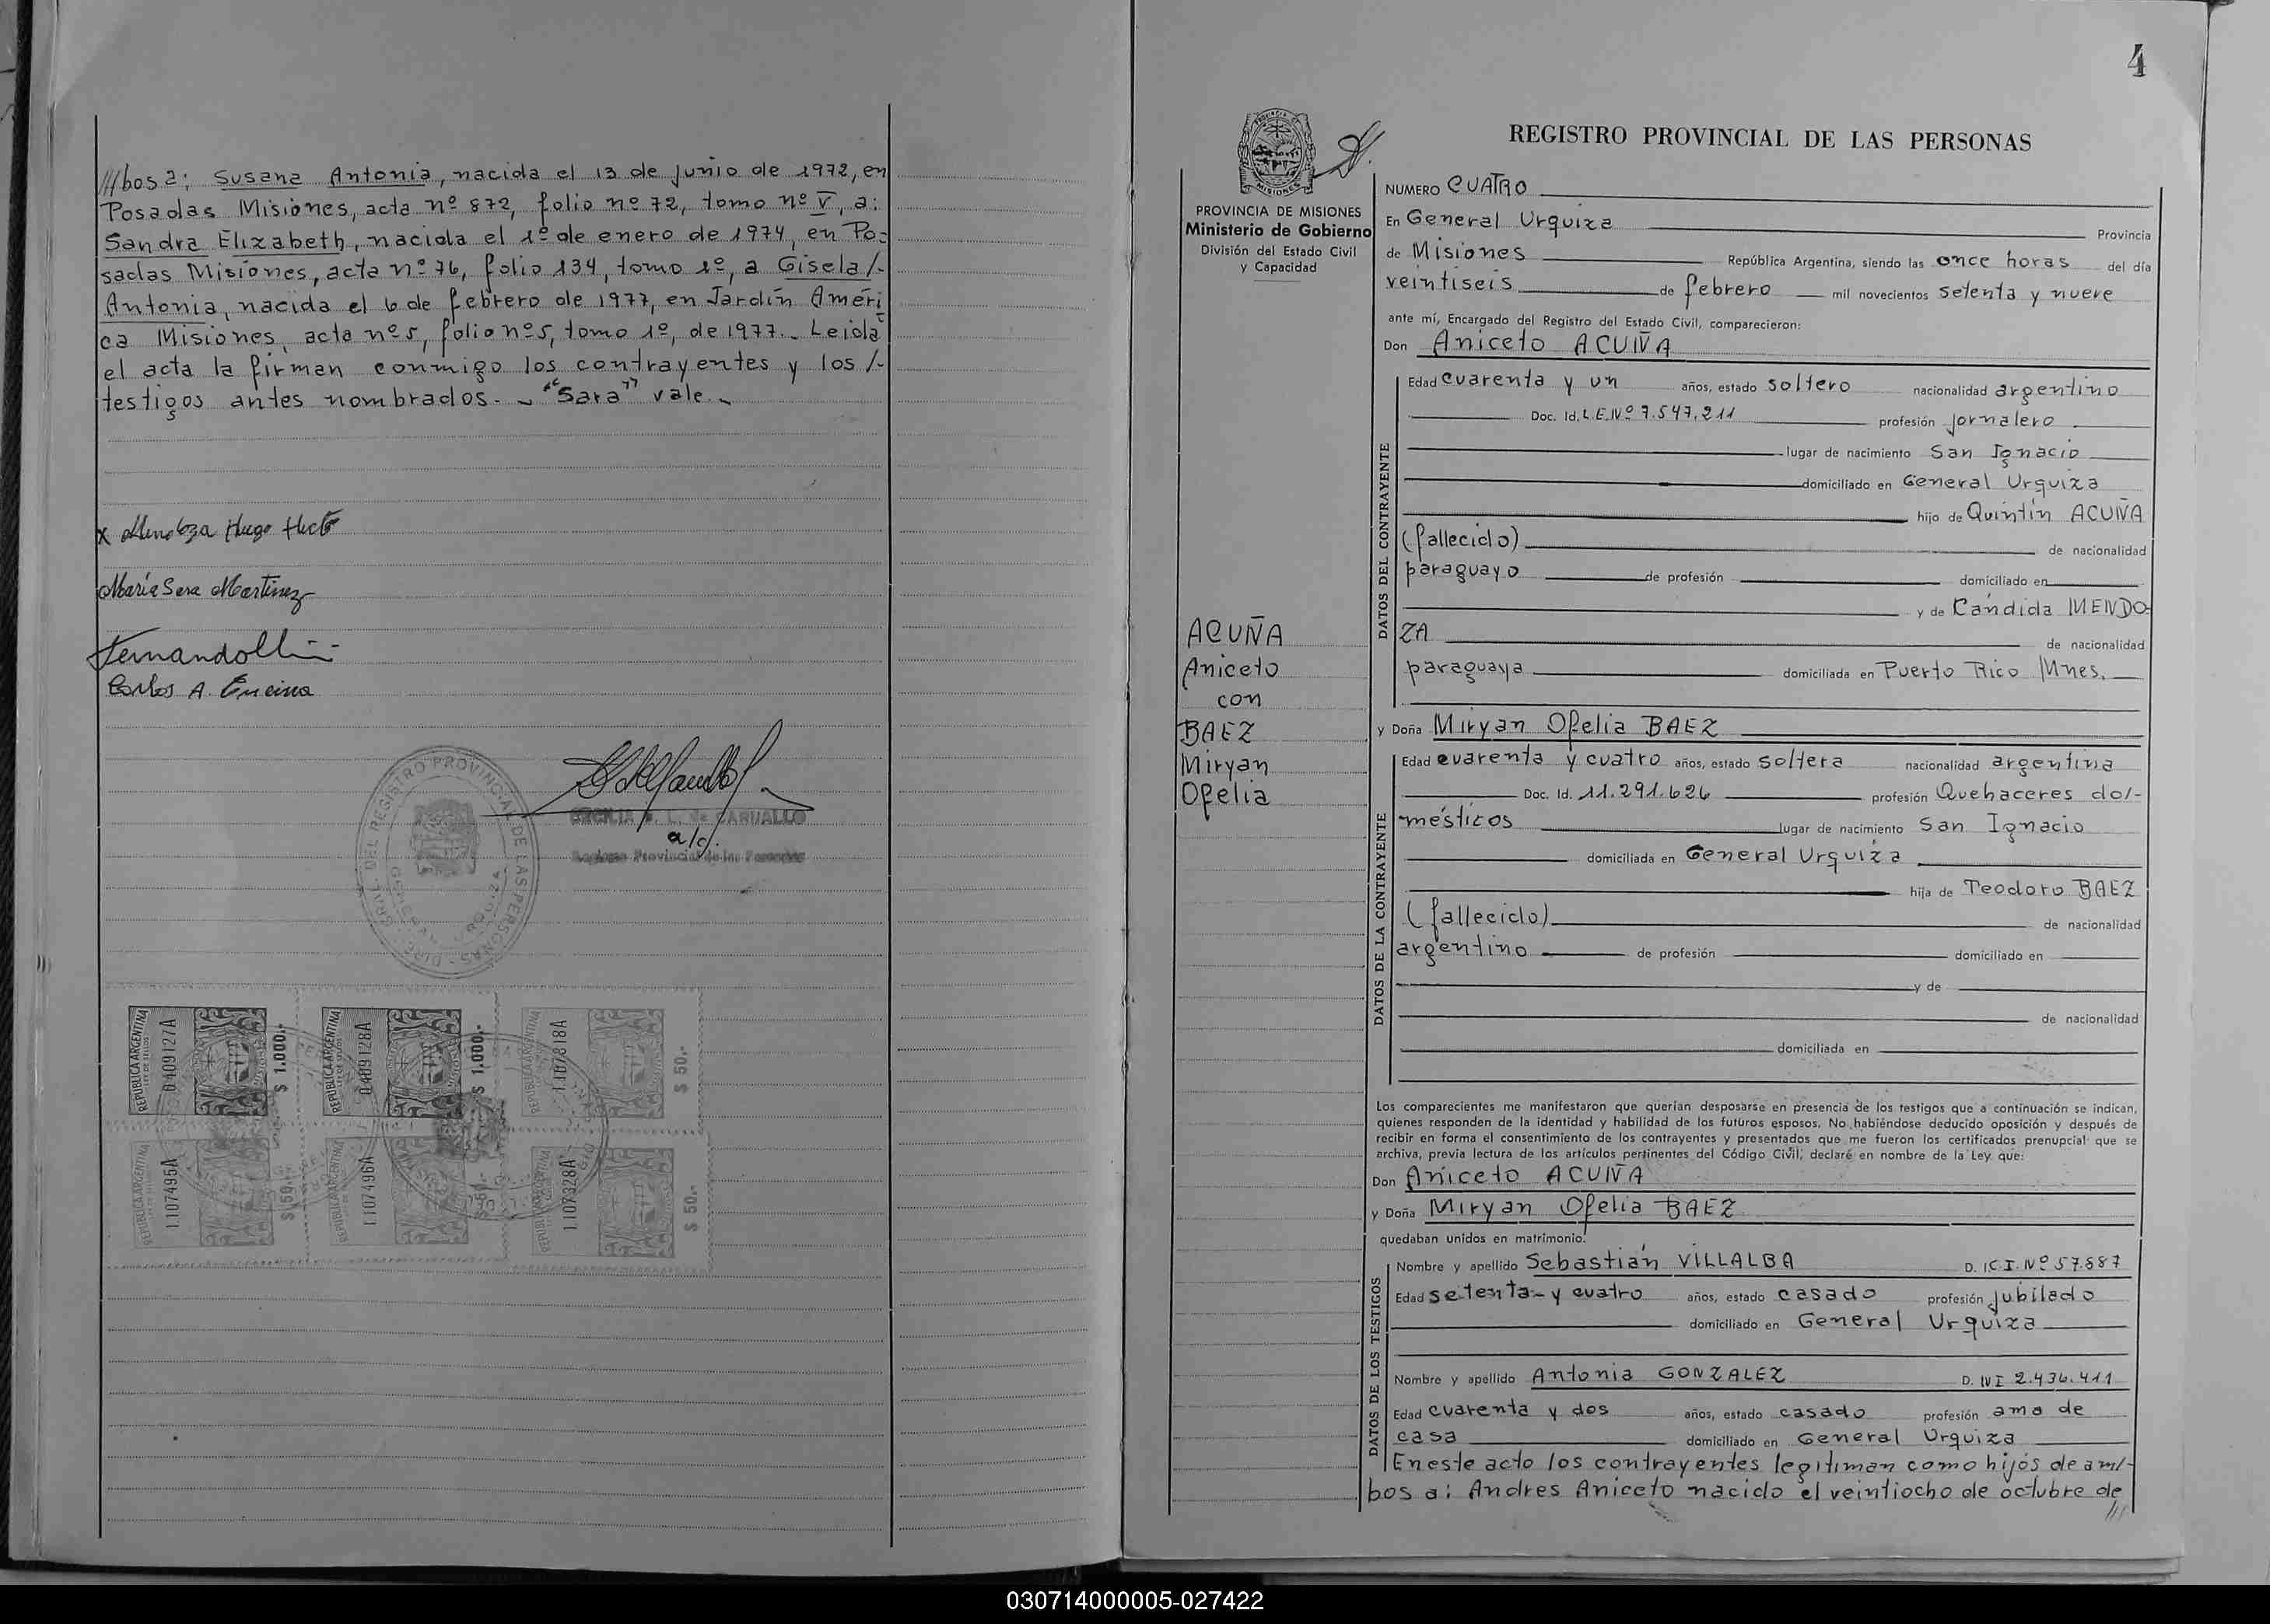 ///bos a: Susana Antonia, nacida el 13 de junio de 1972, en
Posadas Misiones, acta nº 872, folio nº 72, tomo nº V, a:
Sandra Elizabeth, nacida el 1º de enero de 1974, en Po=
sadas Misiones, acta nº 76, folio 134, tomo 1º, a Gisela/-
Antonia, nacida el 6 de febrero de 1977, en Jardín Améri
ca Misiones, acta nº5, folio nº5, tomo 1º, de 1977.- Leida
el acta la firman conmigo los contrayentes y los /-
testigos antes nombrados.- "Sara" vale.-
x Mendoza Hugo
María Sara Martinez
Carlos A. Encina
GRAL. DEL REGISTRO PROVINCIAL DE LAS PERSONAS - DIRC.
CECILIA S. L. de CARVALLO
a/c.
Registro Provincial de las Personas
REPUBLICA ARGENTINA
0409127A
$ 1.000.-
REPUBLICA ARGENTINA
0409128A
$ 1.000.-
REPUBLICA ARGENTINA
1.107818A
$ 50.-
REPUBLICA ARGENTINA
1.107495A
$ 50.-
REPUBLICA ARGENTINA
1.107496A
REPUBLICA ARGENTINA
1.107328A
$ 50.-
4
MISIONES
PROVINCIA DE MISIONES
Ministerio de Gobierno
División del Estado Civil
y Capacidad
ACUÑA
Aniceto
con
BAEZ
Miryan
Ofelia
REGISTRO PROVINCIAL DE LAS PERSONAS
NUMERO CUATRO
En General Urquiza Provincia
de Misiones República Argentina, siendo las once horas del día
veintiseis de febrero mil novecientos setenta y nueve
ante mí, Encargado del Registro del Estado Civil, comparecieron:
Don Aniceto ACUÑA
DATOS DEL CONTRAYENTE
Edad cuarenta y un años, estado soltero nacionalidad argentino
Doc. Id. L.E.Nº 7.547.211 profesión jornalero
lugar de nacimiento San Ignacio
domiciliado en General Urquiza
hijo de Quintín ACUÑA
(fallecido) de nacionalidad
paraguayo de profesión domiciliado en
y de Cándida MENDO-
ZA de nacionalidad
paraguaya domiciliada en Puerto Rico Mnes.
y Doña Miryan Ofelia BAEZ
DATOS DE LA CONTRAYENTE
Edad cuarenta y cuatro años, estado soltera nacionalidad argentina
Doc. Id. 11.291.626 profesión Quehaceres do/-
mésticos lugar de nacimiento San Ignacio
domiciliada en General Urquiza
hija de Teodoro BAEZ
(fallecido) de nacionalidad
argentino de profesión domiciliado en
y de
de nacionalidad
domiciliada en
Los comparecientes me manifestaron que querían desposarse en presencia de los testigos que a continuación se indican,
quienes responden de la identidad y habilidad de los futuros esposos. No habiéndose deducido oposición y después de
recibir en forma el consentimiento de los contrayentes y presentados que me fueron los certificados prenupcial que se
archiva, previa lectura de los artículos pertinentes del Código Civil; declaré en nombre de la Ley que:
Don Aniceto ACUÑA
y Doña Miryan Ofelia BAEZ
quedaban unidos en matrimonio.
DATOS DE LOS TESTIGOS
Nombre y apellido Sebastián VILLALBA D. I C.I. Nº 57.887
Edad setenta- y cuatro años, estado casado profesión jubilado
domiciliado en General Urquiza
Nombre y apellido Antonia GONZALEZ D. NI 2.436.411
Edad cuarenta y dos años, estado casado profesión ama de
casa domiciliado en General Urquiza
En este acto los contrayentes legitiman como hijos de am/-
bos a: Andres Aniceto nacido el veintiocho de octubre de
///
030714000005-027422